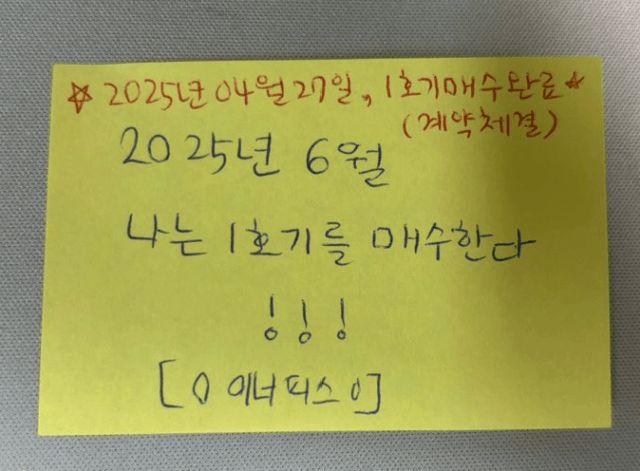 ☆ 2025년 04월 27일, 1호기 매수완료 ☆
(계약체결)
2025년 6월
나는 1호기를 매수한다
!!!
[0 이너피스 0]